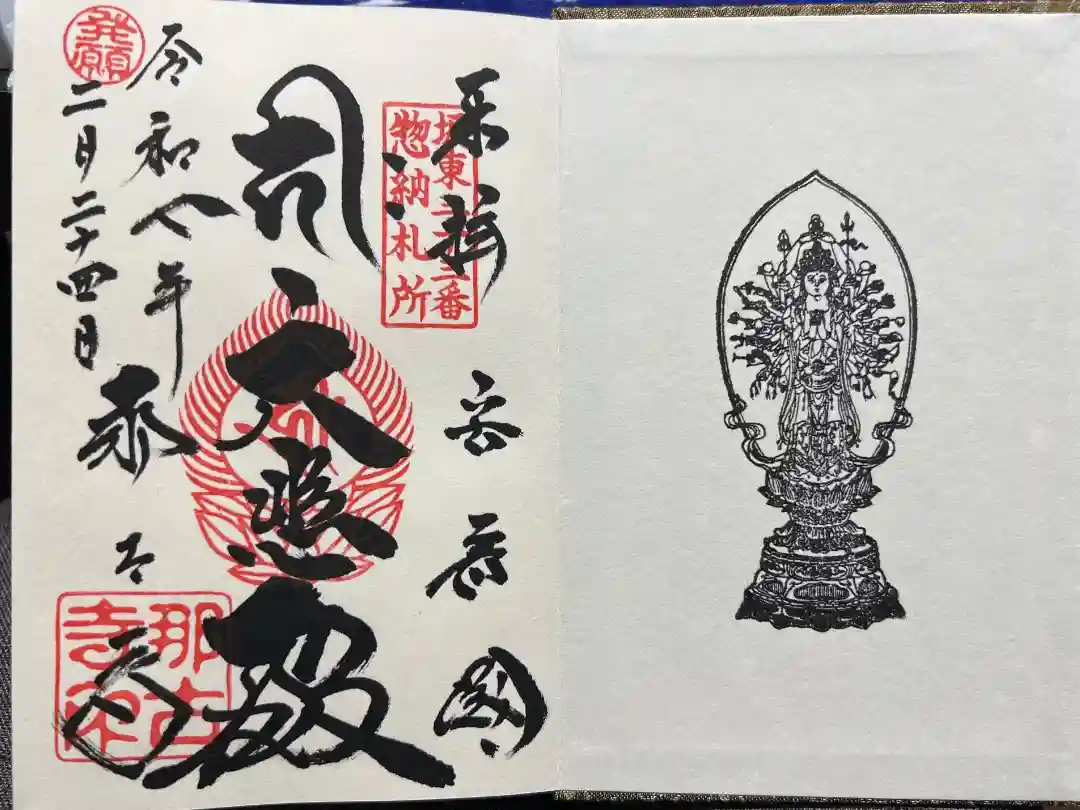 奉拝
安房國
坂東三十三番
惣納札所
大悲殿
令和七年
二月二十四日
発願
那古寺
那古
寺印